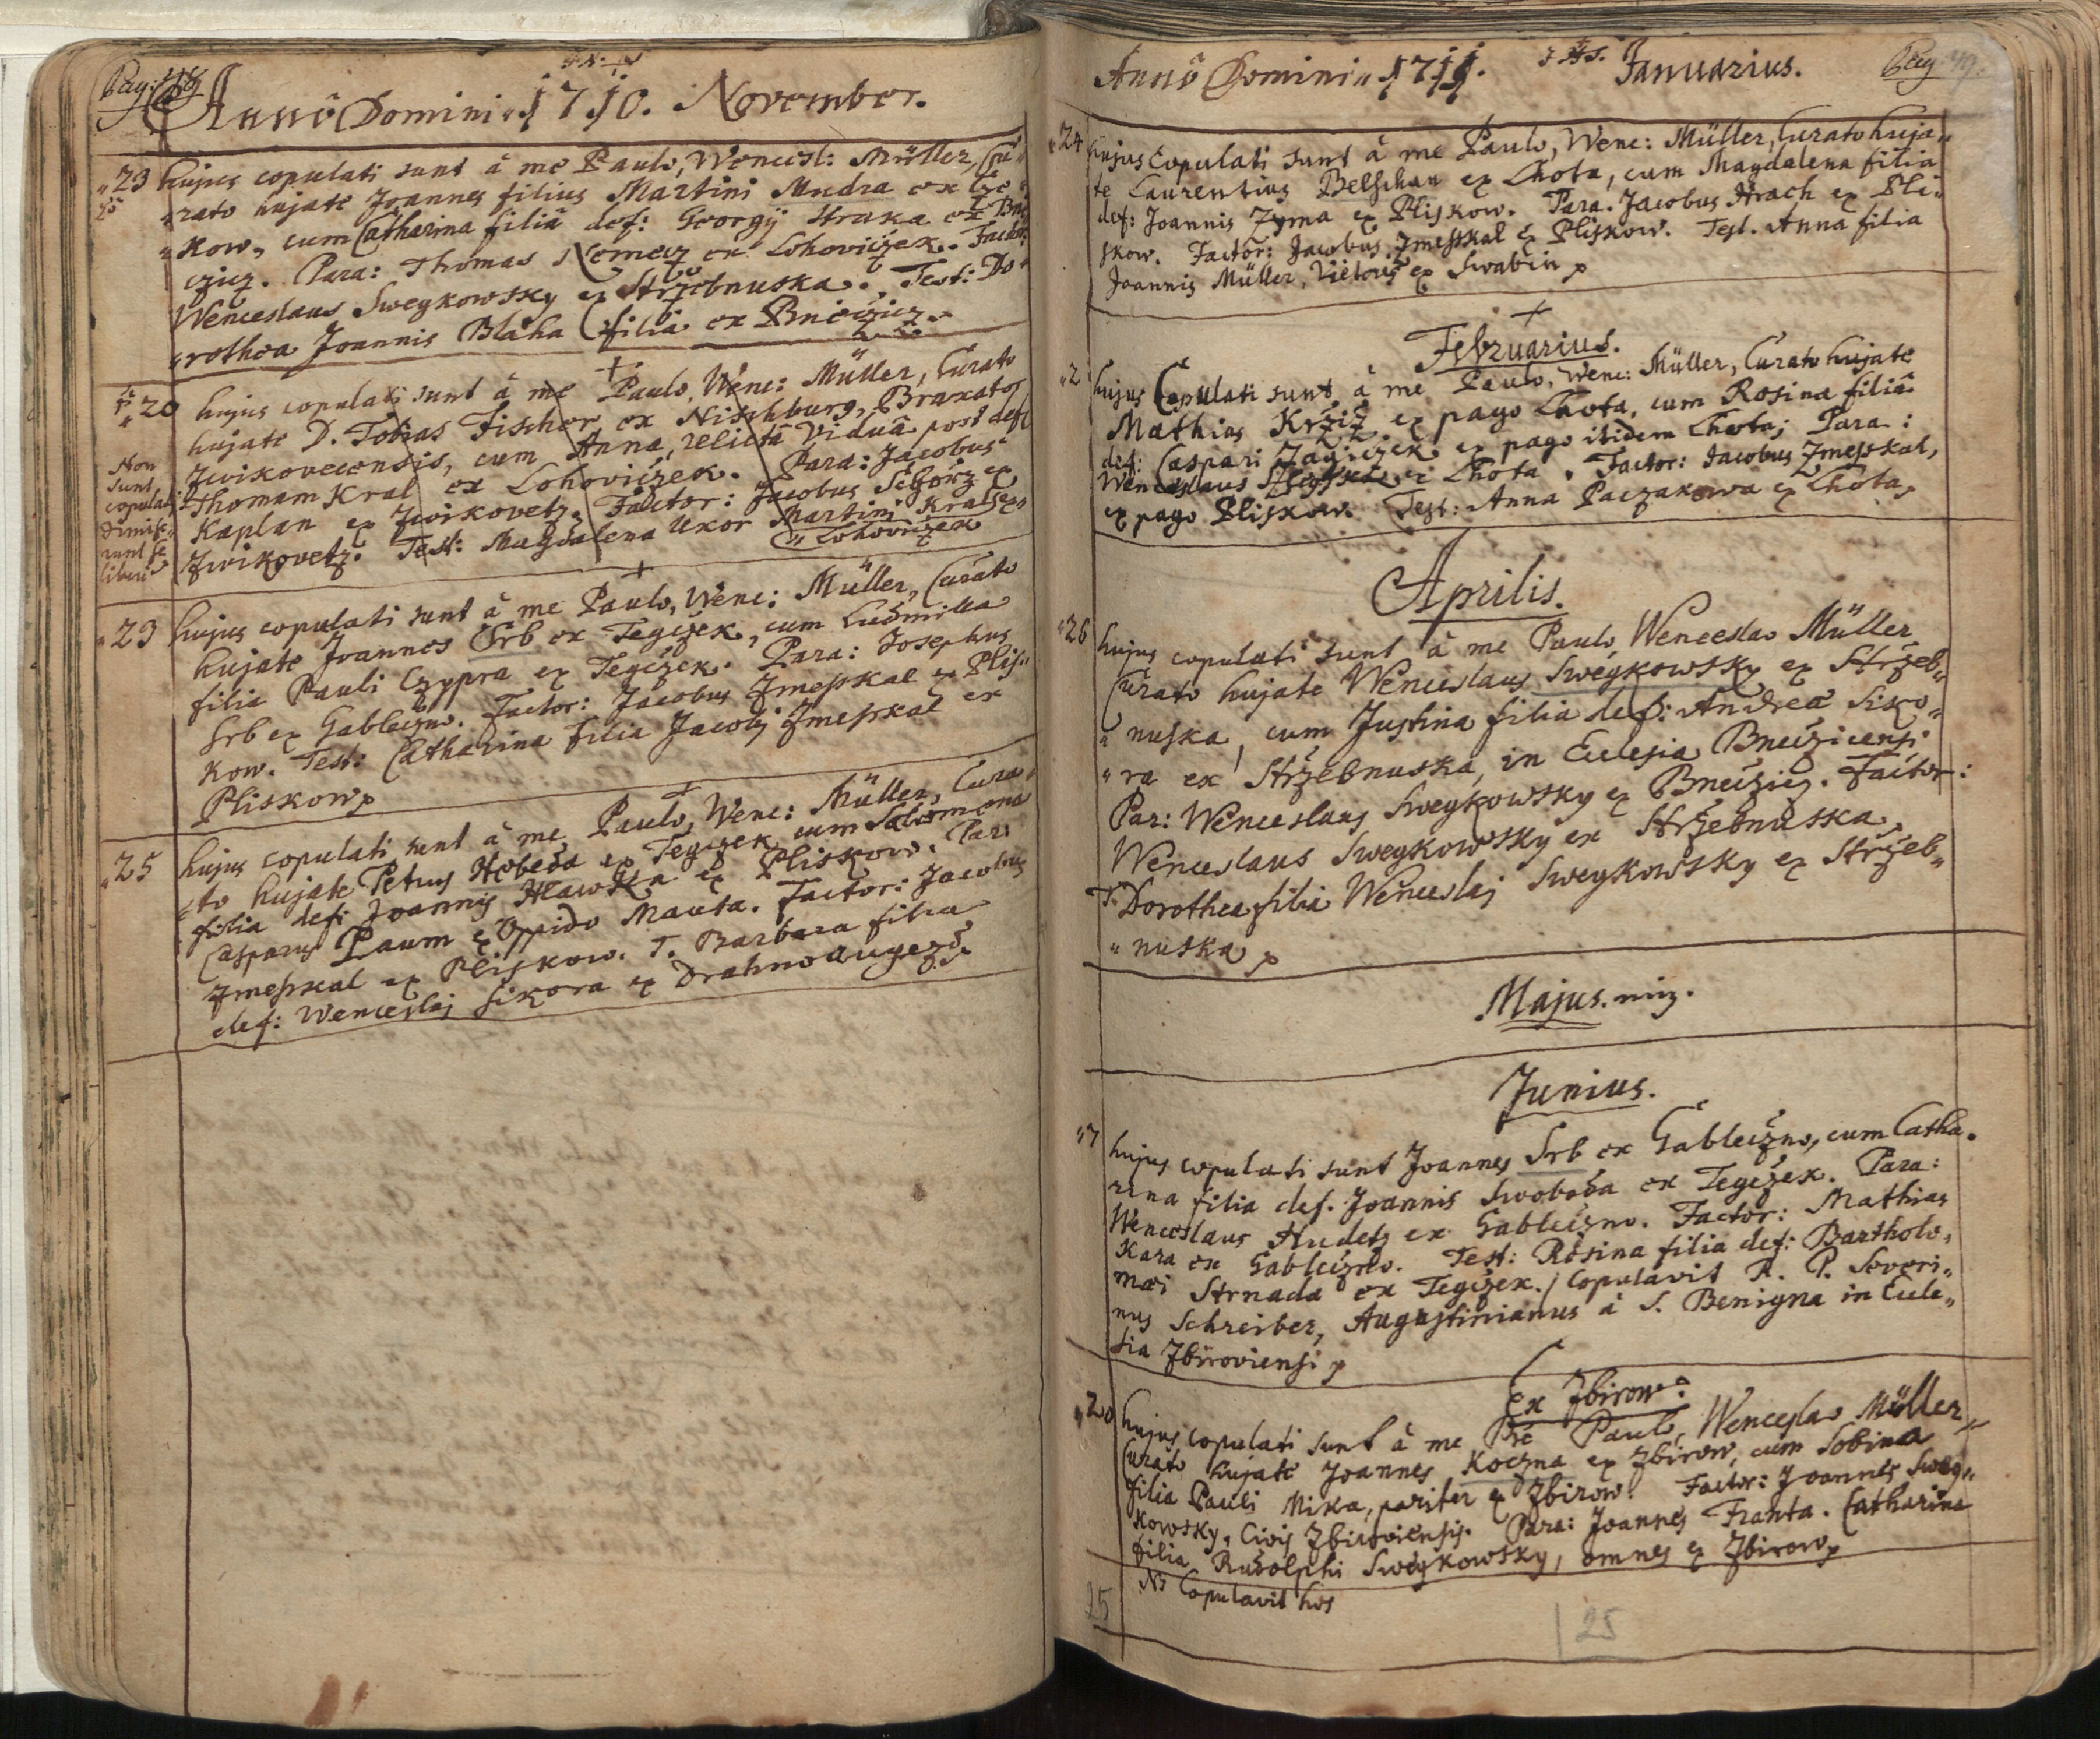 Pag: 48
Annô Domini 1710. November.
23 hujus copulati sunt â me Paulo, Wencisl: Müller, Cu
rato hujate Joannes filius Martini Mudra ex
kow, cum Catharina filiâ def: Georgÿ Straka ex Bne
czicz. Para: Thomas Nemecz ex Lohoviczek. Factor:
Wenceslaus Sweykowsky ex Strzebnuska. Test: Do
rothea Joannis Blaha filia ex Bneczicz.
20 hujus copulati sunt â me Paulo, Wenc: Müller, Curato
hujate D. Tobias Fischer ex Nischburg, Braxator
Zwikovecensis, cum Anna, relictâ Viduâ post def:
Thomam Kral ex Lohoviczek. Para: Jacobus
Kaplan ex Zwikovetz. Factor: Jacobus ex
Zwikovetz. Test: Magdalena Uxor Martini Kral ex
Lohoviczek
Non
sunt
copulati
dimis
runt se
liberè
23 hujus copulati sunt â me Paulo, Wenc: Müller, Curato
hujate Joannes Srb ex Tegczek, cum Ludmilla
filia Pauli Czypra ex Tegczek. Para: Josephus
Srb ex Gableczno. Factor: Jacobus Zmeskal ex Plis
kow. Test: Catharina filia Jacobj Zmeskal ex
Pliskow
25 hujus copulati sunt â me Paulo, Wenc: Müller, Cura
to hujate Petrus Swoboda ex Tegczek cum Salomena
filia def: Joannis Hlawska ex Pliskow. Par:
Casparus Paum ex Oppido Mauta. Factor: Jacobus
Zmeskal ex Pliskow. T. Barbara filia
def: Wenceslaj Sikora ex Drahnoaugezd
Annô Domini 1711. Januarius.
Pag 49.
24 hujus copulati sunt â me Paulo, Wenc: Müller, Curato huja
te Laurentius Belschan ex Lhota, cum Magdalena filia
def: Joannis Zyma ex Pliskow. Para. Jacobus Hrach ex Pli
skow. Factor: Jacobus Zmeskal ex Pliskow. Test. Anna filia
Joannis Müller, Vietoris ex Swabin
Februarius.
2 hujus Copulati sunt â me Paulo, Wenc: Müller, Curato hujate
Mathias Krziz ex pago Lhota, cum Rosina filiâ
def: Caspari Zagiczek ex pago itidem Lhota; Para:
Wenceslaus ex Lhota. Factor: Jacobus Zmeskal,
ex pago Pliskow. Test: Anna Paczakowa ex Lhota
Aprilis.
26 hujus copulati sunt â me Paulo, Wenceslao Müller
Curato hujate Wenceslaus Sweykowsky ex Strzeb
nuska, cum Justina filia def: Andreâ Siko
ra ex Strzebnuska, in Eclesia Bneczicensi
Par: Wenceslaus Sweykowsky ex Bneczicz. Factor:
Wenceslaus Sweykowsky ex Strzebnuska
T. Dorothea filia Wenceslaj Sweykowsky ex Strzeb
nuska
Majus.
Junius.
7 hujus copulati sunt Joannes Srb ex Gableczno, cum Catha
rina filia def. Joannis Swoboda ex Tegczek. Para:
Wenceslaus Hudetz ex Gableczno. Factor: Mathias
Kara ex Gableczno. Test: Rosina filia def: Bartholo
mæi Strnada ex Tegczek. Copulavit R. P. Severi
nus Schreiber, Augustinianus â S. Benigna in Ecle
sia Zbiroviensi
Ex Zbirow:
20 hujus copulati sunt â me Pre Paulo, Wenceslao Müller
Curato hujate Joannes Koczna ex Zbirow, cum Sobina
filia Pauli Mika, pariter ex Zbirow. Factor: Joannes Swey
kowsky, Civis Zbiroviensis. Para: Joannes Franta. Catharina
filia Rudolphi Sweykowsky, omnes ex Zbirow
Copulavit hos
25
25